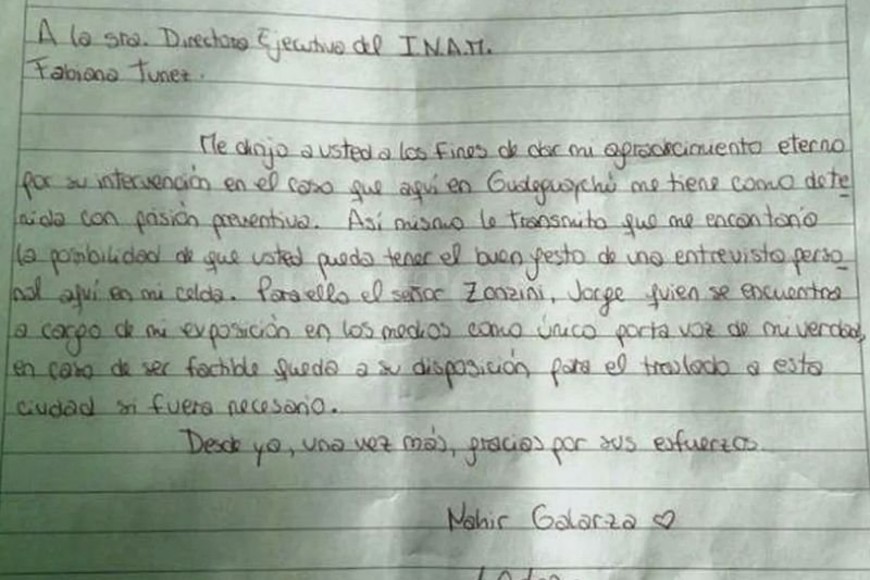 A la sra. Directora Ejecutiva del I.N.A.M.
Fabiana Tunez.
Me dirijo a usted a los fines de dar mi agradecimiento eterno
por su intervención en el caso que aquí en Gualeguaychú me tiene como dete
nida con prisión preventiva. Así mismo le transmito que me encantaría
la posibilidad de que usted pueda tener el buen gesto de una entrevista perso
nal aquí en mi celda. Para ello el señor Zonzini, Jorge quien se encuentra
a cargo de mi exposición en los medios como único porta voz de mi verdad,
en caso de ser factible queda a su disposición para el traslado a esta
ciudad si fuera necesario.
Desde ya, una vez más, gracias por sus esfuerzos.
Nahir Galarza ♡